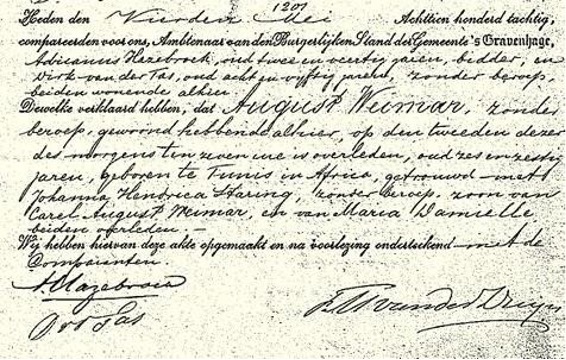 1201
Heden den Vierden Mei Achttien honderd tachtig,
compareerden voor ons, Ambtenaar van den Burgerlijken Stand der Gemeente 's Gravenhage,
Adrianus Hazebroek, oud twee en veertig jaren, bidder, en
Dirk van der Tas, oud acht en vyftig jaren, zonder beroep,
beiden wonende alhier.
Dewelke verklaard hebben, dat August Weimar, zonder
beroep, gewoond hebbende alhier, op den tweeden dezer
des morgens ten zeven ure is overleden, oud zes en zestig
jaren, geboren te Tunis in Africa, getrouwd met
Johanna Hendrica Staring, zonder beroep, zoon van
Carel August Weimar, en van Maria Danielle
beiden overleden.
Wij hebben hiervan deze akte opgemaakt en na voorlezing onderteekend met de
Comparanten.
AHazebroek